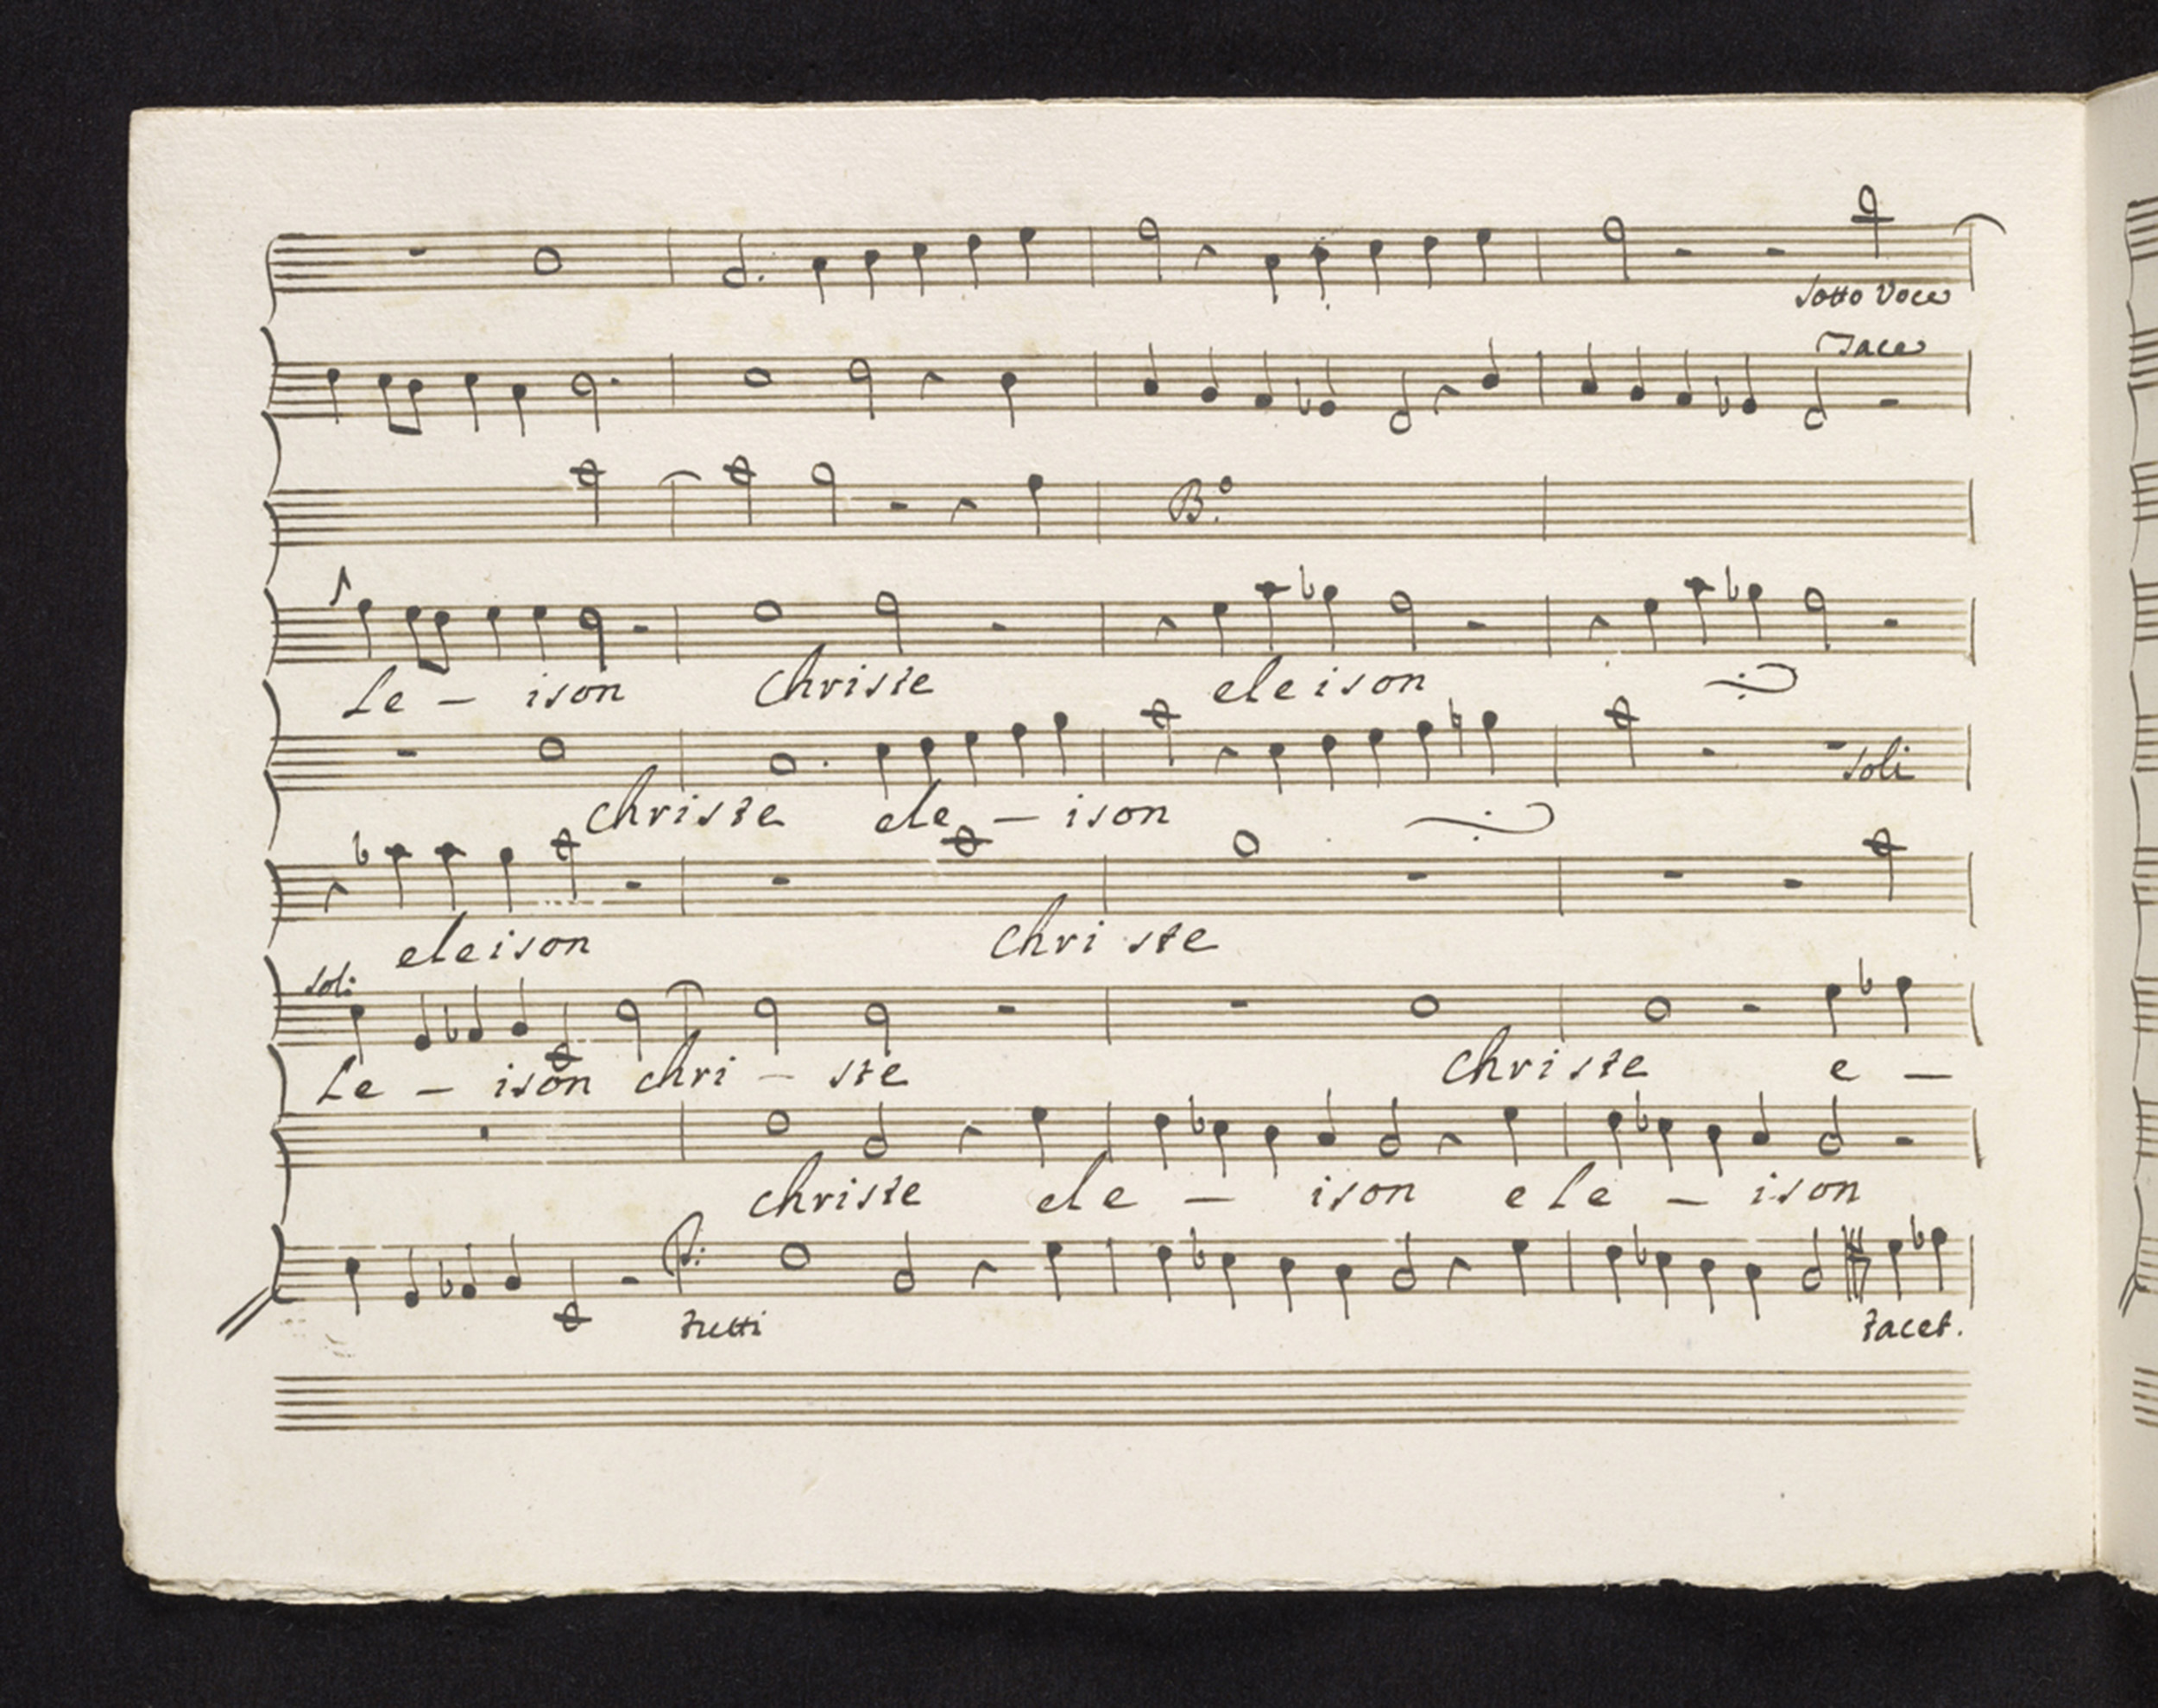 sotto voce
Tace
B.º
Le - ison christe eleison
soli
christe ele - ison
eleison christe
soli
Le - ison chri - ste christe e -
christe ele - ison ele - ison
tutti tacet.